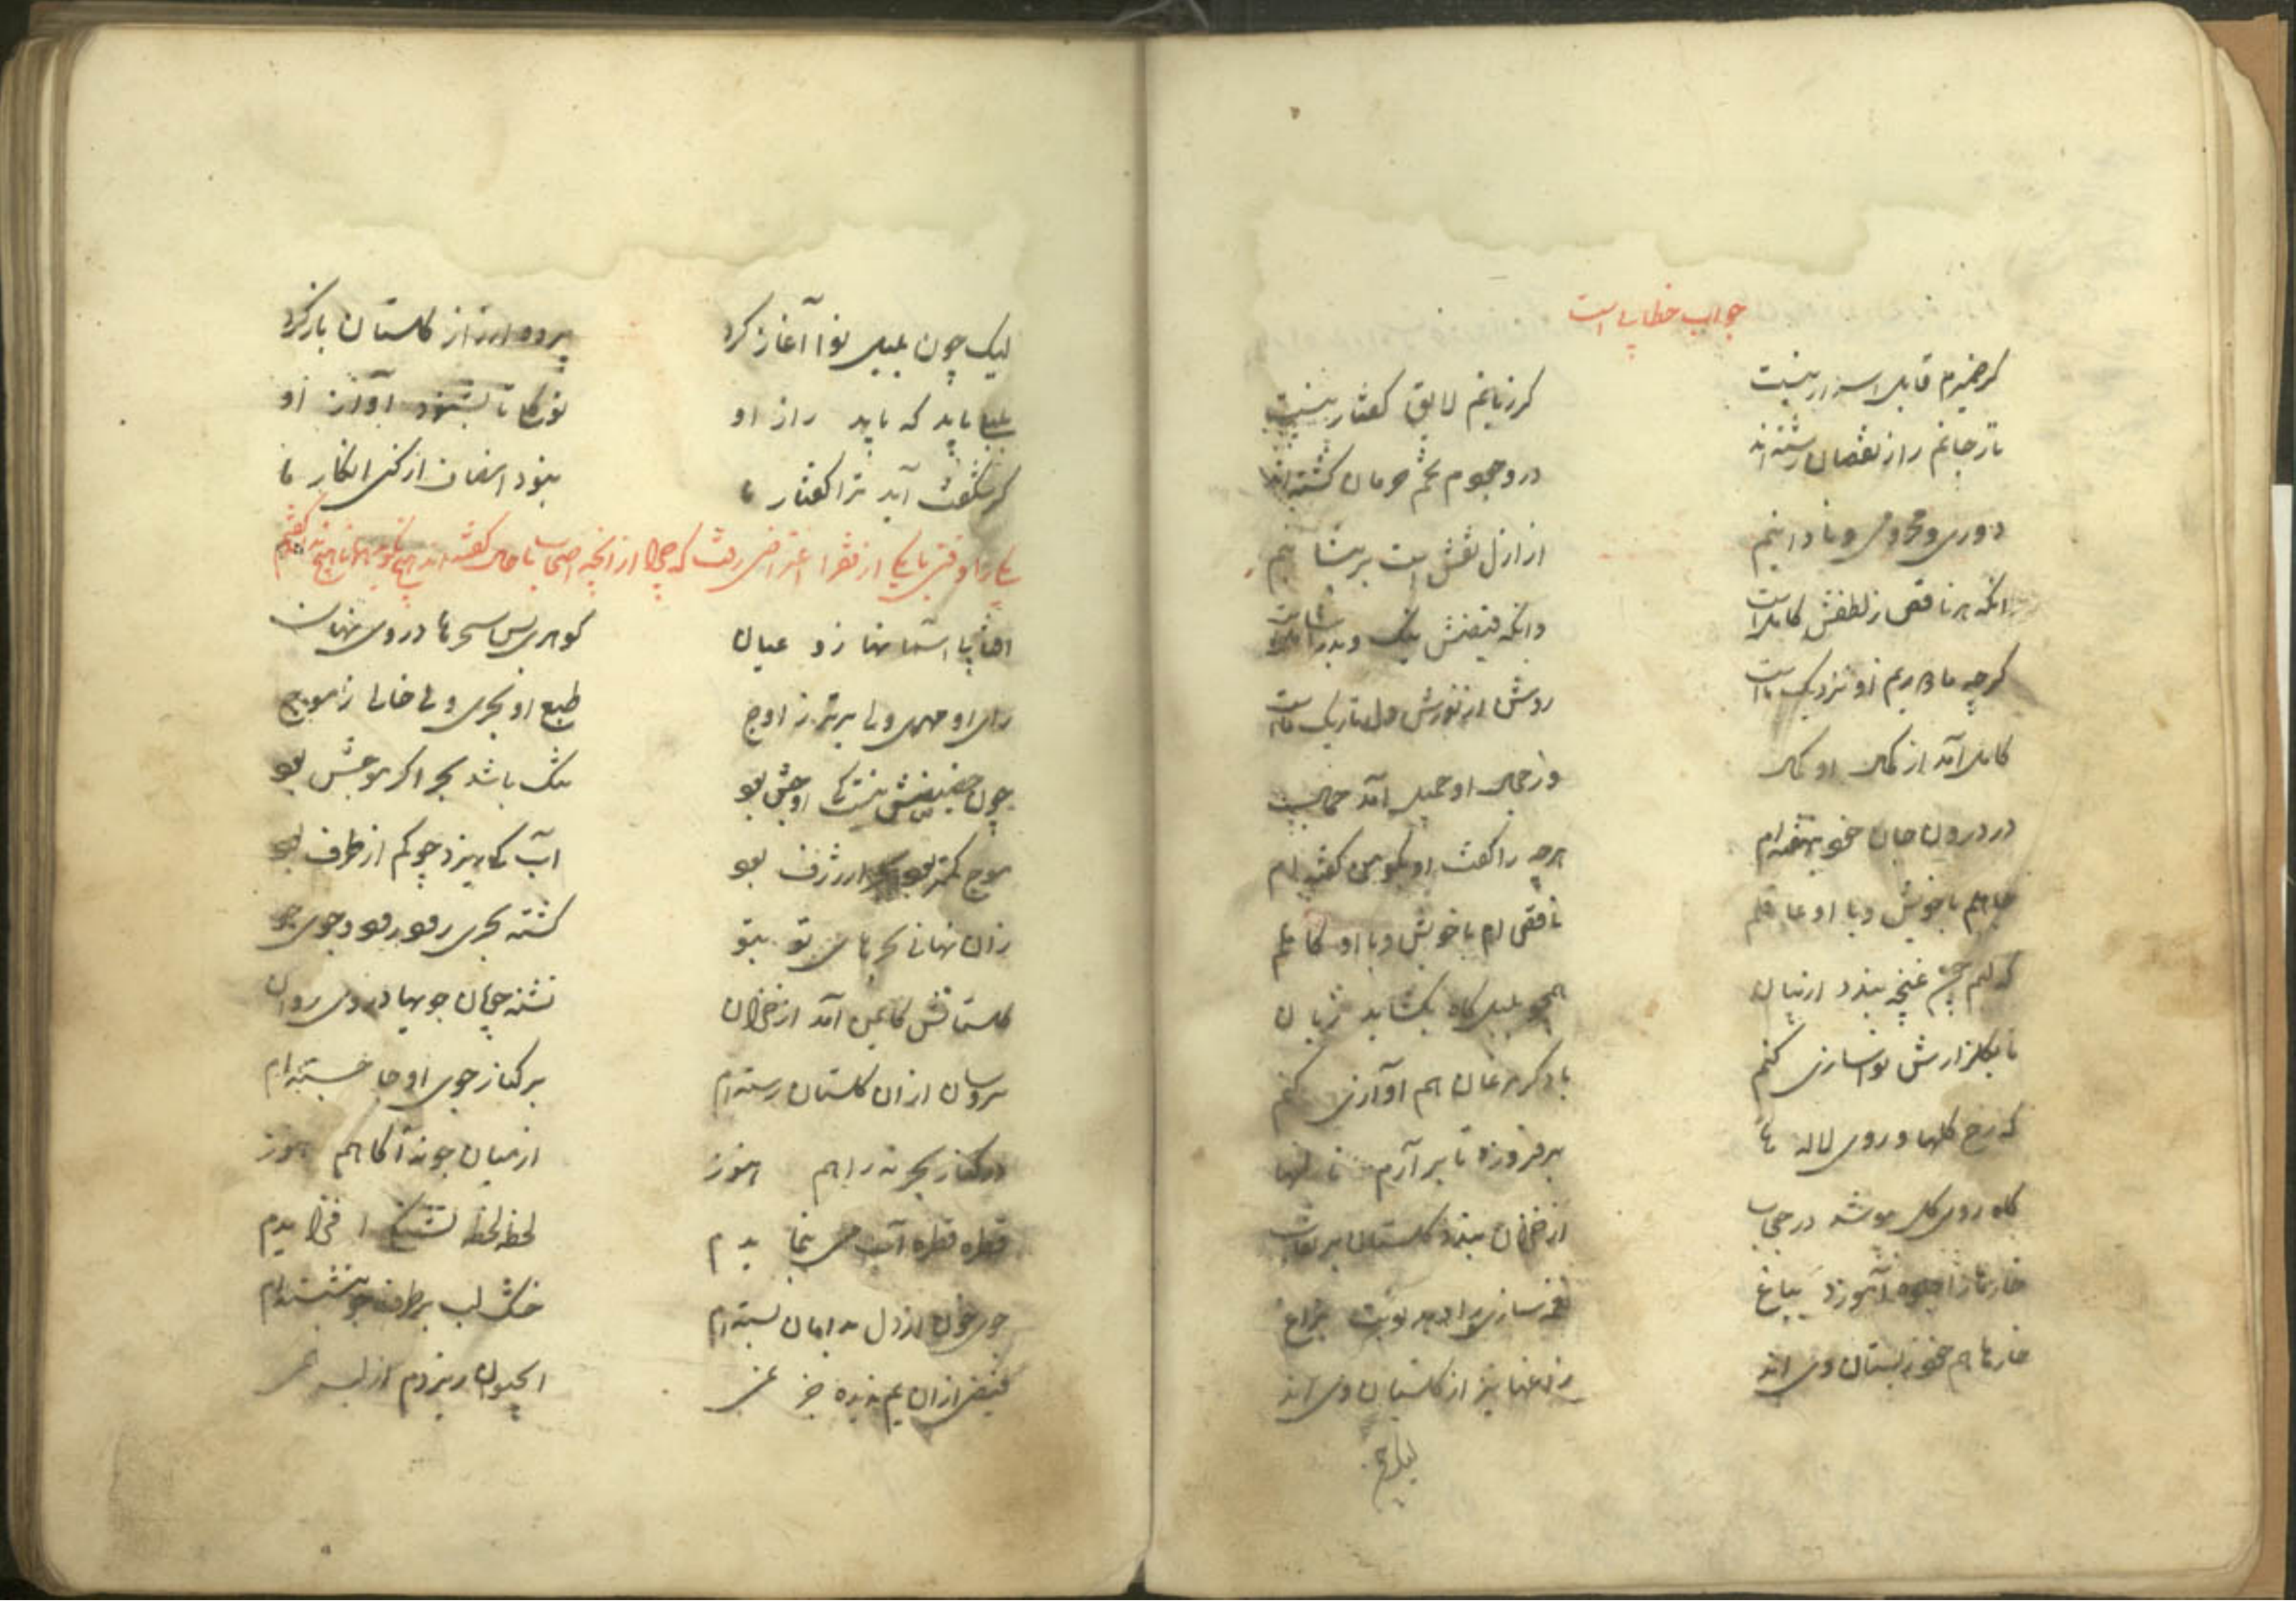 جواب خطابی است
کر ضمیرم قابل اسرار نیست کر زبانم لایق کفتار نیست
تار جانم را ز نقصان رشته اند در وجودم تخم حرمان کشته اند
دوری و محرومی و نادانیم از ازل نقش است بر پیشانیم
انکه هر ناقص ز لطفش کاملست وانکه فیضش نیک و بد را شاملست
کرچه ما دوریم او نزدیک ماست روشن از نورش دل تاریک ماست
کامل آمد از کمال او کمال وز جمال او جمیل آمد جمال
در درون جان خود بنهفته ام هرچه را کفت او بکو من کفته ام
جاهلم با خویش و با او عاقلم ناقص ام با خویش و با او کاملم
کر لبم چون غنچه بندد از بیان همچو بلبل کاه بکشاید زبان
تا بکلزارش نواسازی کنم با دکر مرغان هم آوازی کنم
که رخ کلها و روی لاله ها برفروزد تا برآرم ناله ها
کاه روی کل بپوشد در حجاب از خزان بندد کلستان را نقاب
خارها را جلوه آموزد بباغ نغمه سازی را دهد نوبت بزاغ
خارها هم خود ز بستان وی اند زاغها نیز از کلستان وی اند
لیک چون بلبل نوا آغاز کرد پرده راز از کلستان باز کرد
بلبلی باید که یابد راز او نوکلی تا بشنود آواز او
کر شکفت آید ترا کفتار ما نبود انصاف ار کنی انکار ما
یکی را وقتی با یکی از فقرا اعتراضی رفت که چرا از آنچه اصحاب حال کفته اند
آسمانها زو عیان کوهری بس بحرها در وی نهان
رای او مهری ولی برتر ز اوج طبع او بحری ولی خالی ز موج
چون حضیضش نیست کی اوجش بود ننک باشد بحر اکر موجش بود
موج کمتر بحر ار ژرف بود آب کی ریزد چو کم از ظرف بود
زان نهانی بحرهای تو بتو کشته بحری رود رود و جوی جو
کلستانش کایمن آمد از خزان تشنه جویان جویها در وی روان
سروسان از ان کلستان رسته ام بر کنار جوی او جا جسته ام
در کنار بحر نه راهم هنوز از میان جو نه آکاهم هنوز
قطره قطره آب می بنمایدم لحظه لحظه تشنکی افزایدم
جوی خون از دل بدامان بسته ام خشک لب بر طرف جو بنشسته ام
فیض از ان یم ندیده جز نمی